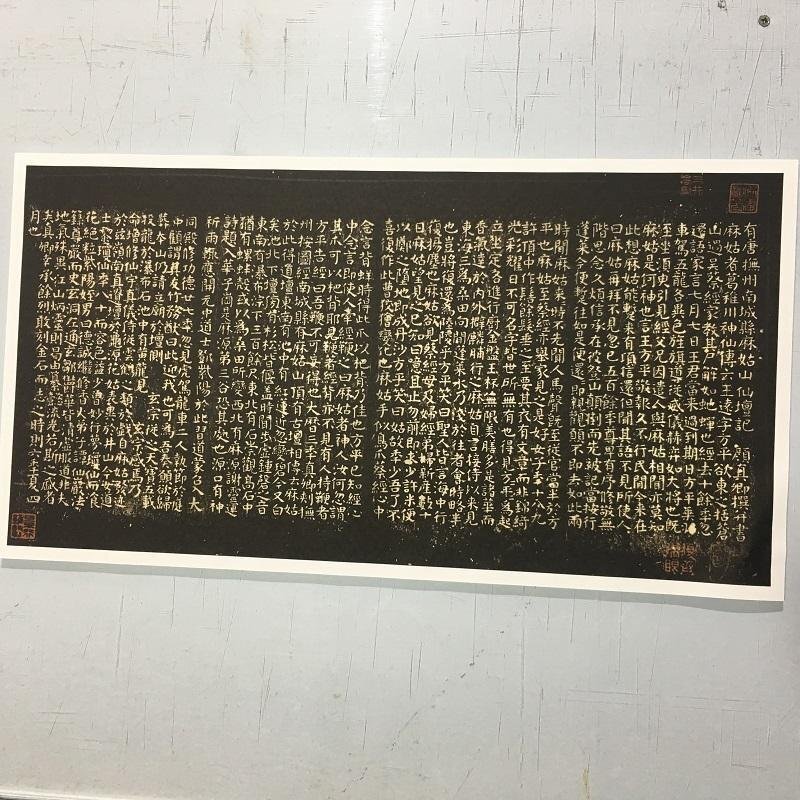 有唐撫州南城縣麻姑山仙壇記 顏真卿撰并書
麻姑者葛稚川神仙傳云王遠字方平欲東之括蒼
山過吳蔡經家教其尸解如蛇蟬也經去十餘年忽
還語家言七月七日王君當來過到期日方平乘羽
車駕五龍各異色旌旗導從威儀赫弈如大將也既
至坐須臾引見經父兄因遣人與麻姑相聞亦莫知
麻姑是何神也言王方平敬報久不行民間今來在
此想麻姑能暫來有頃信還但聞其語不見所使人
曰麻姑再拜不見忽已五百餘年尊卑有序修敬無
階思念久煩信承在彼登山顛倒而先被記當按行
蓬萊今便暫往如是便還還即親觀願不即去如此兩
時間麻姑來來時不先聞人馬聲既至從官當半於方
平也麻姑至蔡經亦舉家見之是好女子年十八九
許頂中作髻餘髮垂之至要其衣有文章而非錦綺
光彩耀日不可名字皆世所無有也得見方平方平為起
立坐定各進行廚金盤玉杯無限美膳多是諸華而
香氣達於內外擗麟脯行之麻姑自言接待以來見
東海三為桑田向間蓬萊水乃淺於往者會時略半
也豈將復還為陸陵乎方平笑曰聖人皆言海中行
復揚塵也麻姑欲見蔡經母及婦經弟婦新產數十
日麻姑望見之已知曰噫且止勿前即求少許米便
以擲之墮地即成丹沙方平笑曰姑故年少吾了不
喜復作此曹狡獪變化也麻姑手似鳥爪蔡經心中
念言背蛘時得此爪以爬背乃佳也方平已知經心
中念言即使人牽經鞭之曰麻姑者神人汝何忽謂
其爪可以爬背耶見鞭著經背亦不見有人持鞭者
方平告經曰吾鞭不可妄得也大曆三年真卿刺撫
州按圖經南城縣有麻姑山頂有古壇相傳云麻姑
於此得道壇東南有池中有紅蓮近忽變碧今又白
矣池北下壇傍有杉松松皆偃蓋時聞步虛鍾磬之音
東南有瀑布淙下三百餘尺東北有石崇觀高石中
猶有螺蚌殼或以為桑田所變西北有麻源謝靈運
詩題入華子岡是麻源第三谷恐其處也源口有神
祈雨輒應開元中道士鄧紫陽於此習道蒙召入大
同殿修功德廿七年忽見虎駕龍車二人執節於庭
中顧謂其友竹務猷曰此迎我也可為吾奏願欲歸
葬本山仍請立廟於壇側 玄宗從之天寶五載
投龍於瀑布石池中有黃龍見 玄宗感焉乃
命增修仙宇真儀侍從雲鶴之類於戲自麻姑發跡
於茲嶺南真遺壇於龜源花姑表異於井山今女道
士黎瓊仙年八十而容色益少曾妙行夢瓊仙而餐
花絕粒紫陽姪男曰德誠繼修香火弟子譚仙巖法
籙尊嚴而史玄洞左通玄鄒鬱華皆清虛服道非夫
地氣殊異江山炳靈則曷由纂懿流光若斯之盛者
矣真卿幸承餘烈敢刻金石而志之時則六年夏四
月也